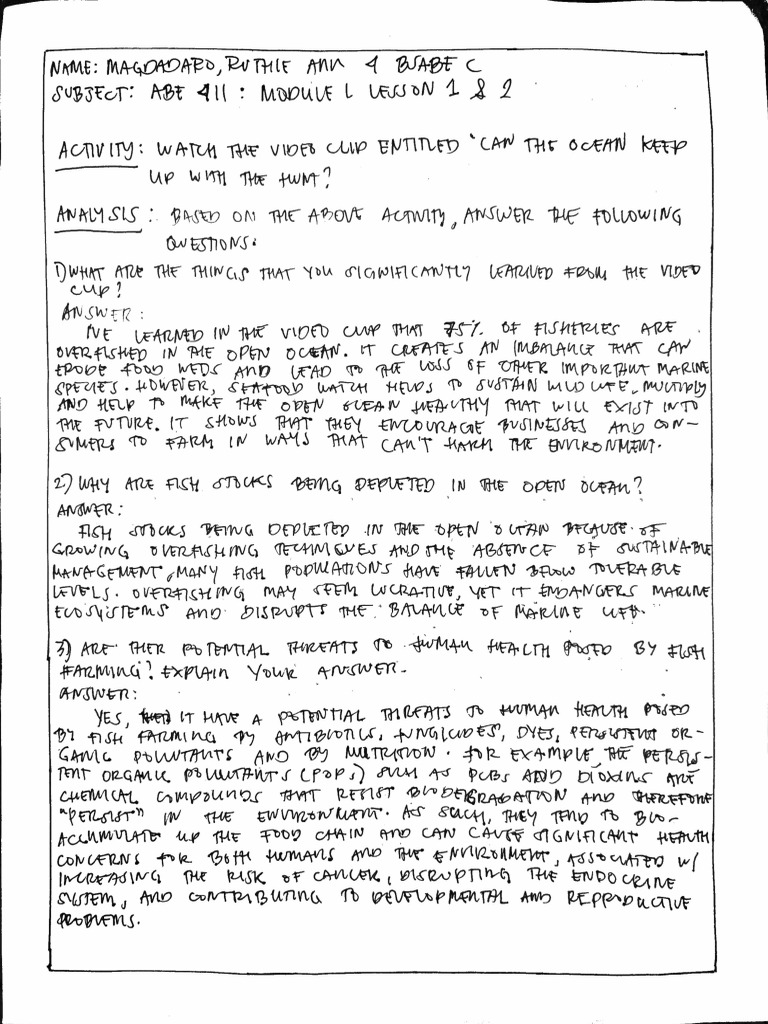 NAME: MAGDADARO, RUTHIE ANN 4 BSABE C
SUBJECT: ABE 411 : MODULE 1 LESSON 1 & 2
ACTIVITY: WATCH THE VIDEO CLIP ENTITLED "CAN THE OCEAN KEEP
UP WITH THE HUNT?
ANALYSIS: BASED ON THE ABOVE ACTIVITY, ANSWER THE FOLLOWING
QUESTIONS.
1) WHAT ARE THE THINGS THAT YOU SIGNIFICANTLY LEARNED FROM THE VIDEO
CLIP?
ANSWER:
I'VE LEARNED IN THE VIDEO CLIP THAT 75% OF FISHERIES ARE
OVERFISHED IN THE OPEN OCEAN. IT CREATES AN IMBALANCE THAT CAN
ERODE FOOD WEBS AND LEAD TO THE LOSS OF OTHER IMPORTANT MARINE
SPECIES. HOWEVER, SEAFOOD WATCH HELPS TO SUSTAIN WILD LIFE, MULTIPLY
AND HELP TO MAKE THE OPEN OCEAN HEALTHY THAT WILL EXIST INTO
THE FUTURE. IT SHOWS THAT THEY ENCOURAGE BUSINESSES AND CON-
SUMERS TO FARM IN WAYS THAT CAN'T HARM THE ENVIRONMENT.
2) WHY ARE FISH STOCKS BEING DEPLETED IN THE OPEN OCEAN?
ANSWER:
FISH STOCKS BEING DEPLETED IN THE OPEN OCEAN BECAUSE OF
GROWING OVERFISHING TECHNIQUES AND THE ABSENCE OF SUSTAINABLE
MANAGEMENT, MANY FISH POPULATIONS HAVE FALLEN BELOW TOLERABLE
LEVELS. OVERFISHING MAY SEEM LUCRATIVE, YET IT ENDANGERS MARINE
ECOSYSTEMS AND DISRUPTS THE BALANCE OF MARINE LIFE.
3) ARE THER POTENTIAL THREATS TO HUMAN HEALTH POSED BY FISH
FARMING? EXPLAIN YOUR ANSWER.
ANSWER:
YES, IT HAVE A POTENTIAL THREATS TO HUMAN HEALTH POSED
BY FISH FARMING BY ANTIBIOTICS, FUNGICIDES, DYES, PERSISTENT OR-
GANIC POLLUTANTS AND BY NUTRITION. FOR EXAMPLE, THE PERSIS-
TENT ORGANIC POLLUTANTS (POPs) SUCH AS PCBs AND DIOXINS ARE
CHEMICAL COMPOUNDS THAT RESIST BIODEGRADATION AND THEREFORE
"PERSIST" IN THE ENVIRONMENT. AS SUCH, THEY TEND TO BIO-
ACCUMULATE UP THE FOOD CHAIN AND CAN CAUSE SIGNIFICANT HEALTH
CONCERNS FOR BOTH HUMANS AND THE ENVIRONMENT, ASSOCIATED W/
INCREASING THE RISK OF CANCER, DISRUPTING THE ENDOCRINE
SYSTEM, AND CONTRIBUTING TO DEVELOPMENTAL AND REPRODUCTIVE
PROBLEMS.